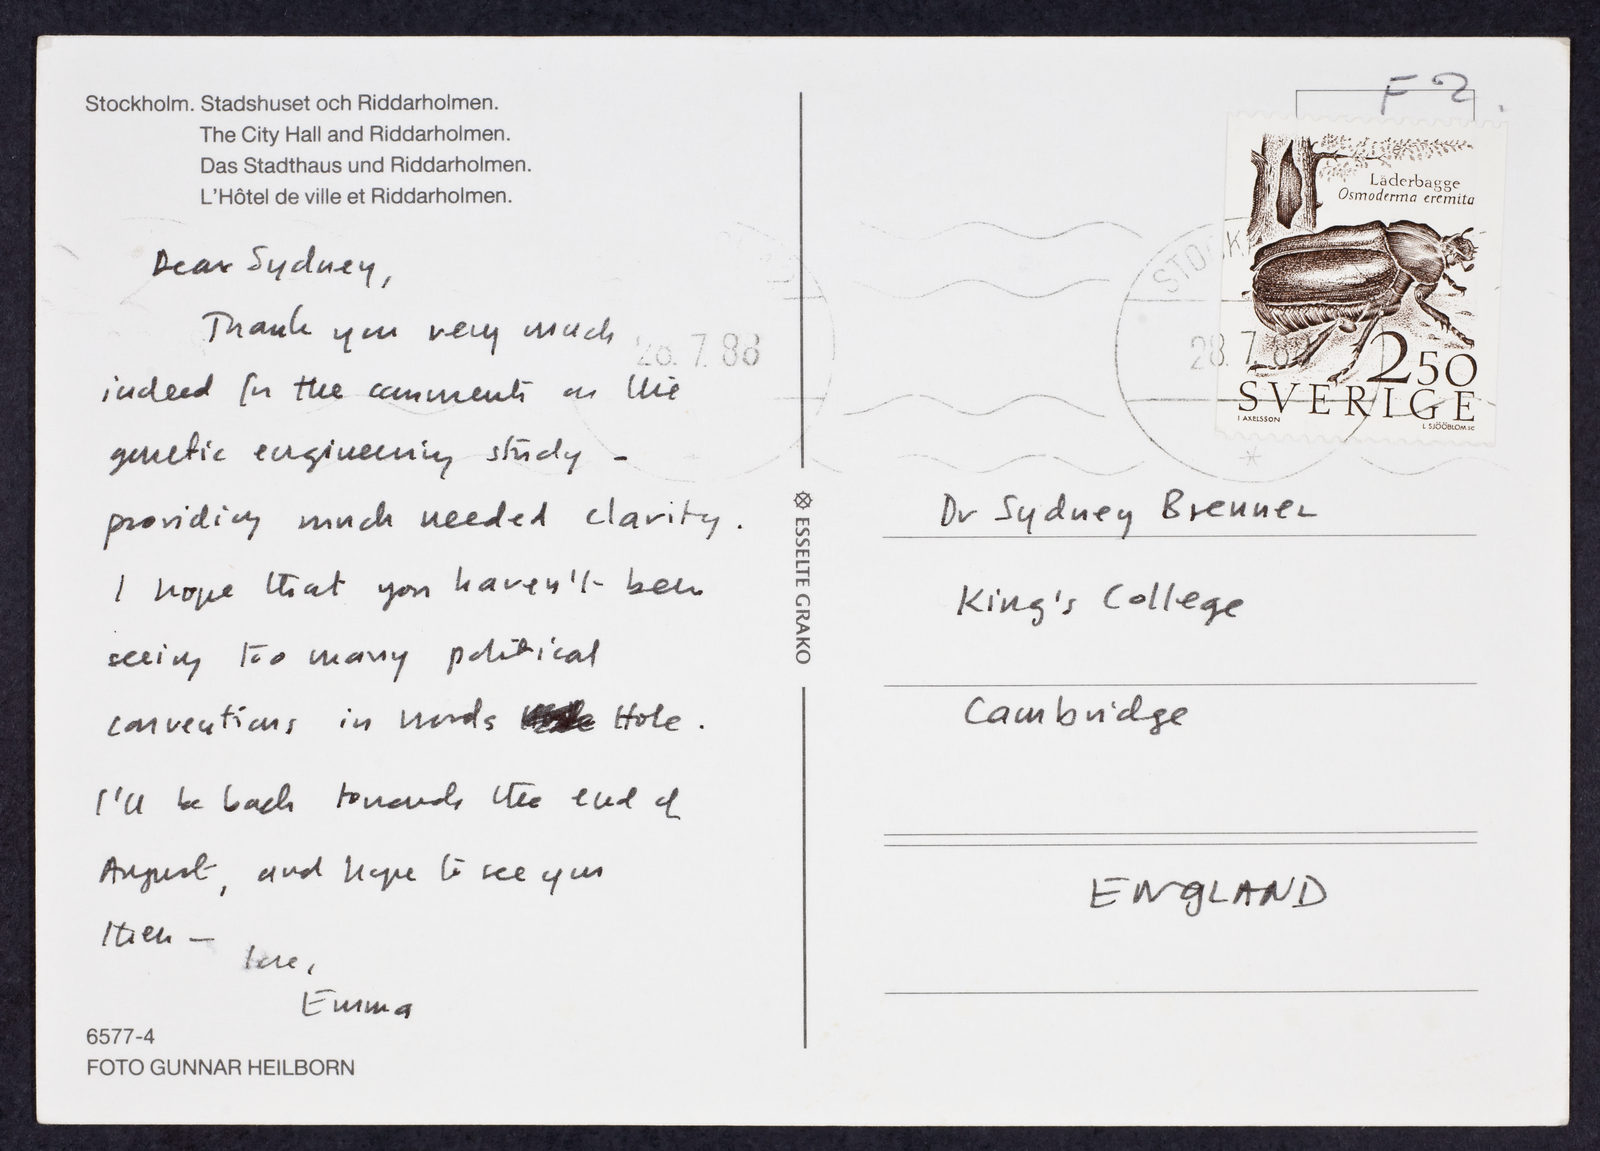 Stockholm. Stadshuset och Riddarholmen.
The City Hall and Riddarholmen.
Das Stadthaus und Riddarholmen.
L'Hôtel de ville et Riddarholmen.
Dear Sydney,
Thank you very much
indeed for the comments on the
genetic engineering study –
providing much needed clarity.
I hope that you haven't been
seeing too many political
conventions in Woods Hole.
I'll be back towards the end of
August, and hope to see you
then –
love,
Emma
6577-4
FOTO GUNNAR HEILBORN
28. 7. 88
ESSELTE GRAKO
F 2.
Läderbagge
Osmoderma eremita
STOCK
28. 7. 8
2.50
SVERIGE
I AXELSSON
L SJÖÖBLOM SC
Dr Sydney Brenner
King's College
Cambridge
ENGLAND